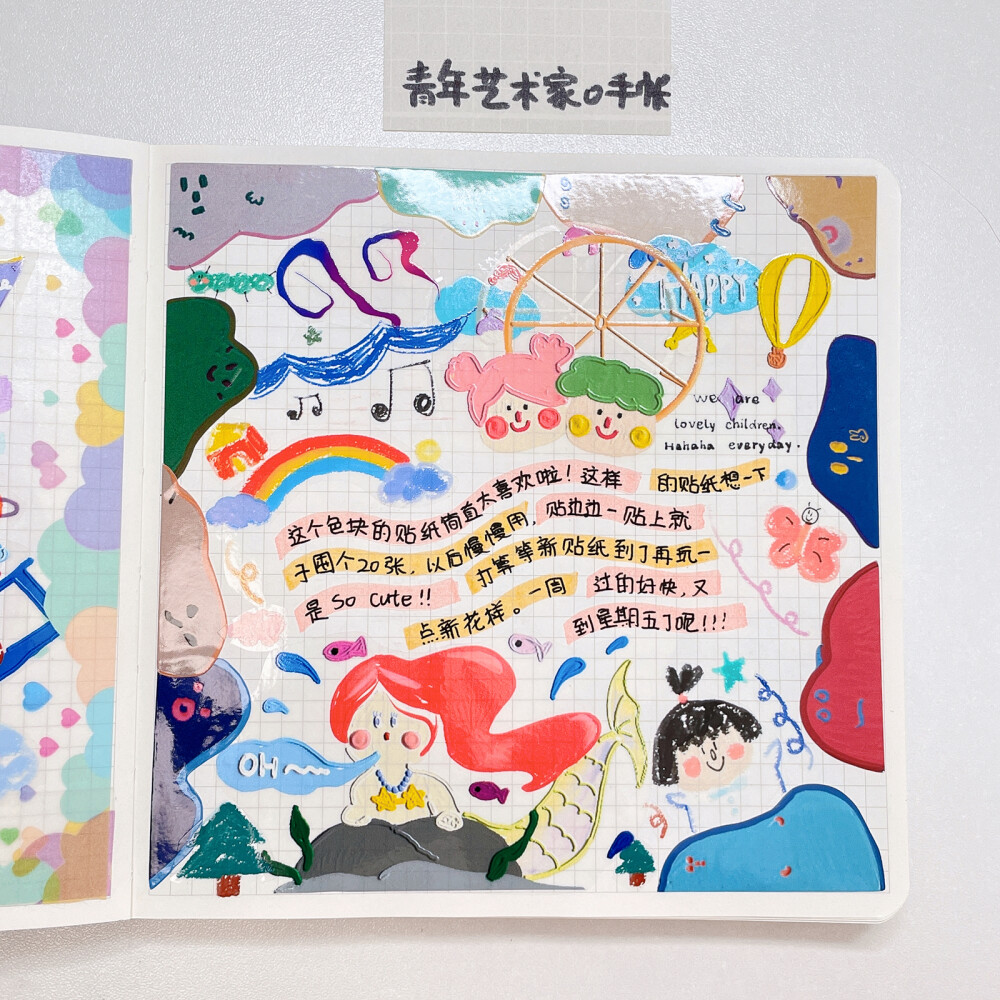 青年艺术家の手帐
HAPPY
We are
lovely children.
Hahaha everyday.
这个色块的贴纸简直太喜欢啦！这样
的贴纸想一下
子囤个20张，以后慢慢用，
贴边边一贴上就
是 So cute!!
打算等新贴纸到了再玩一
点新花样。一周
过的好快，又
到星期五了呢!!!
OH~